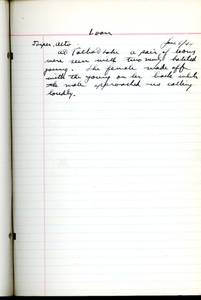 Loon
Jasper, Alta. June 4/34
At Talbot Lake a pair of loons
were seen with two newly hatched
young. The female made off
with the young on her back while
the male approached us calling
loudly.